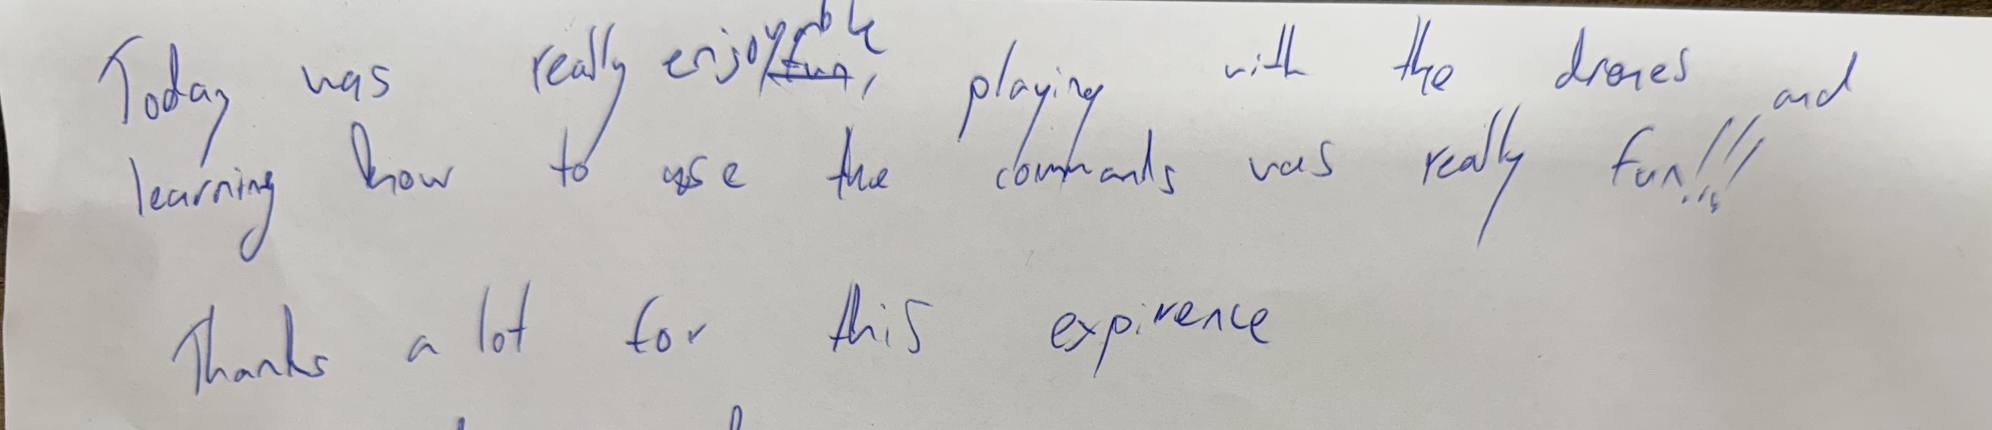 Today was really enjoyable, playing with the drones and
learning how to use the commands was really fun!!!
Thanks a lot for this expirence